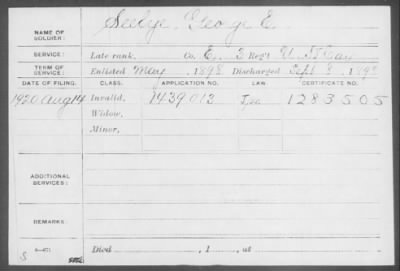 NAME OF SOLDIER: Seelye, George E.
SERVICE: Late rank, Co. E, 3 Reg't U. S. Cav
TERM OF SERVICE: Enlisted May, 1898, Discharged Sept 8, 1898
DATE OF FILING. CLASS. APPLICATION NO. LAW. CERTIFICATE NO.
1920 Aug 14 Invalid, 1439012 1283505
Widow,
Minor,
ADDITIONAL SERVICES:
REMARKS:
S Died , 1 , at